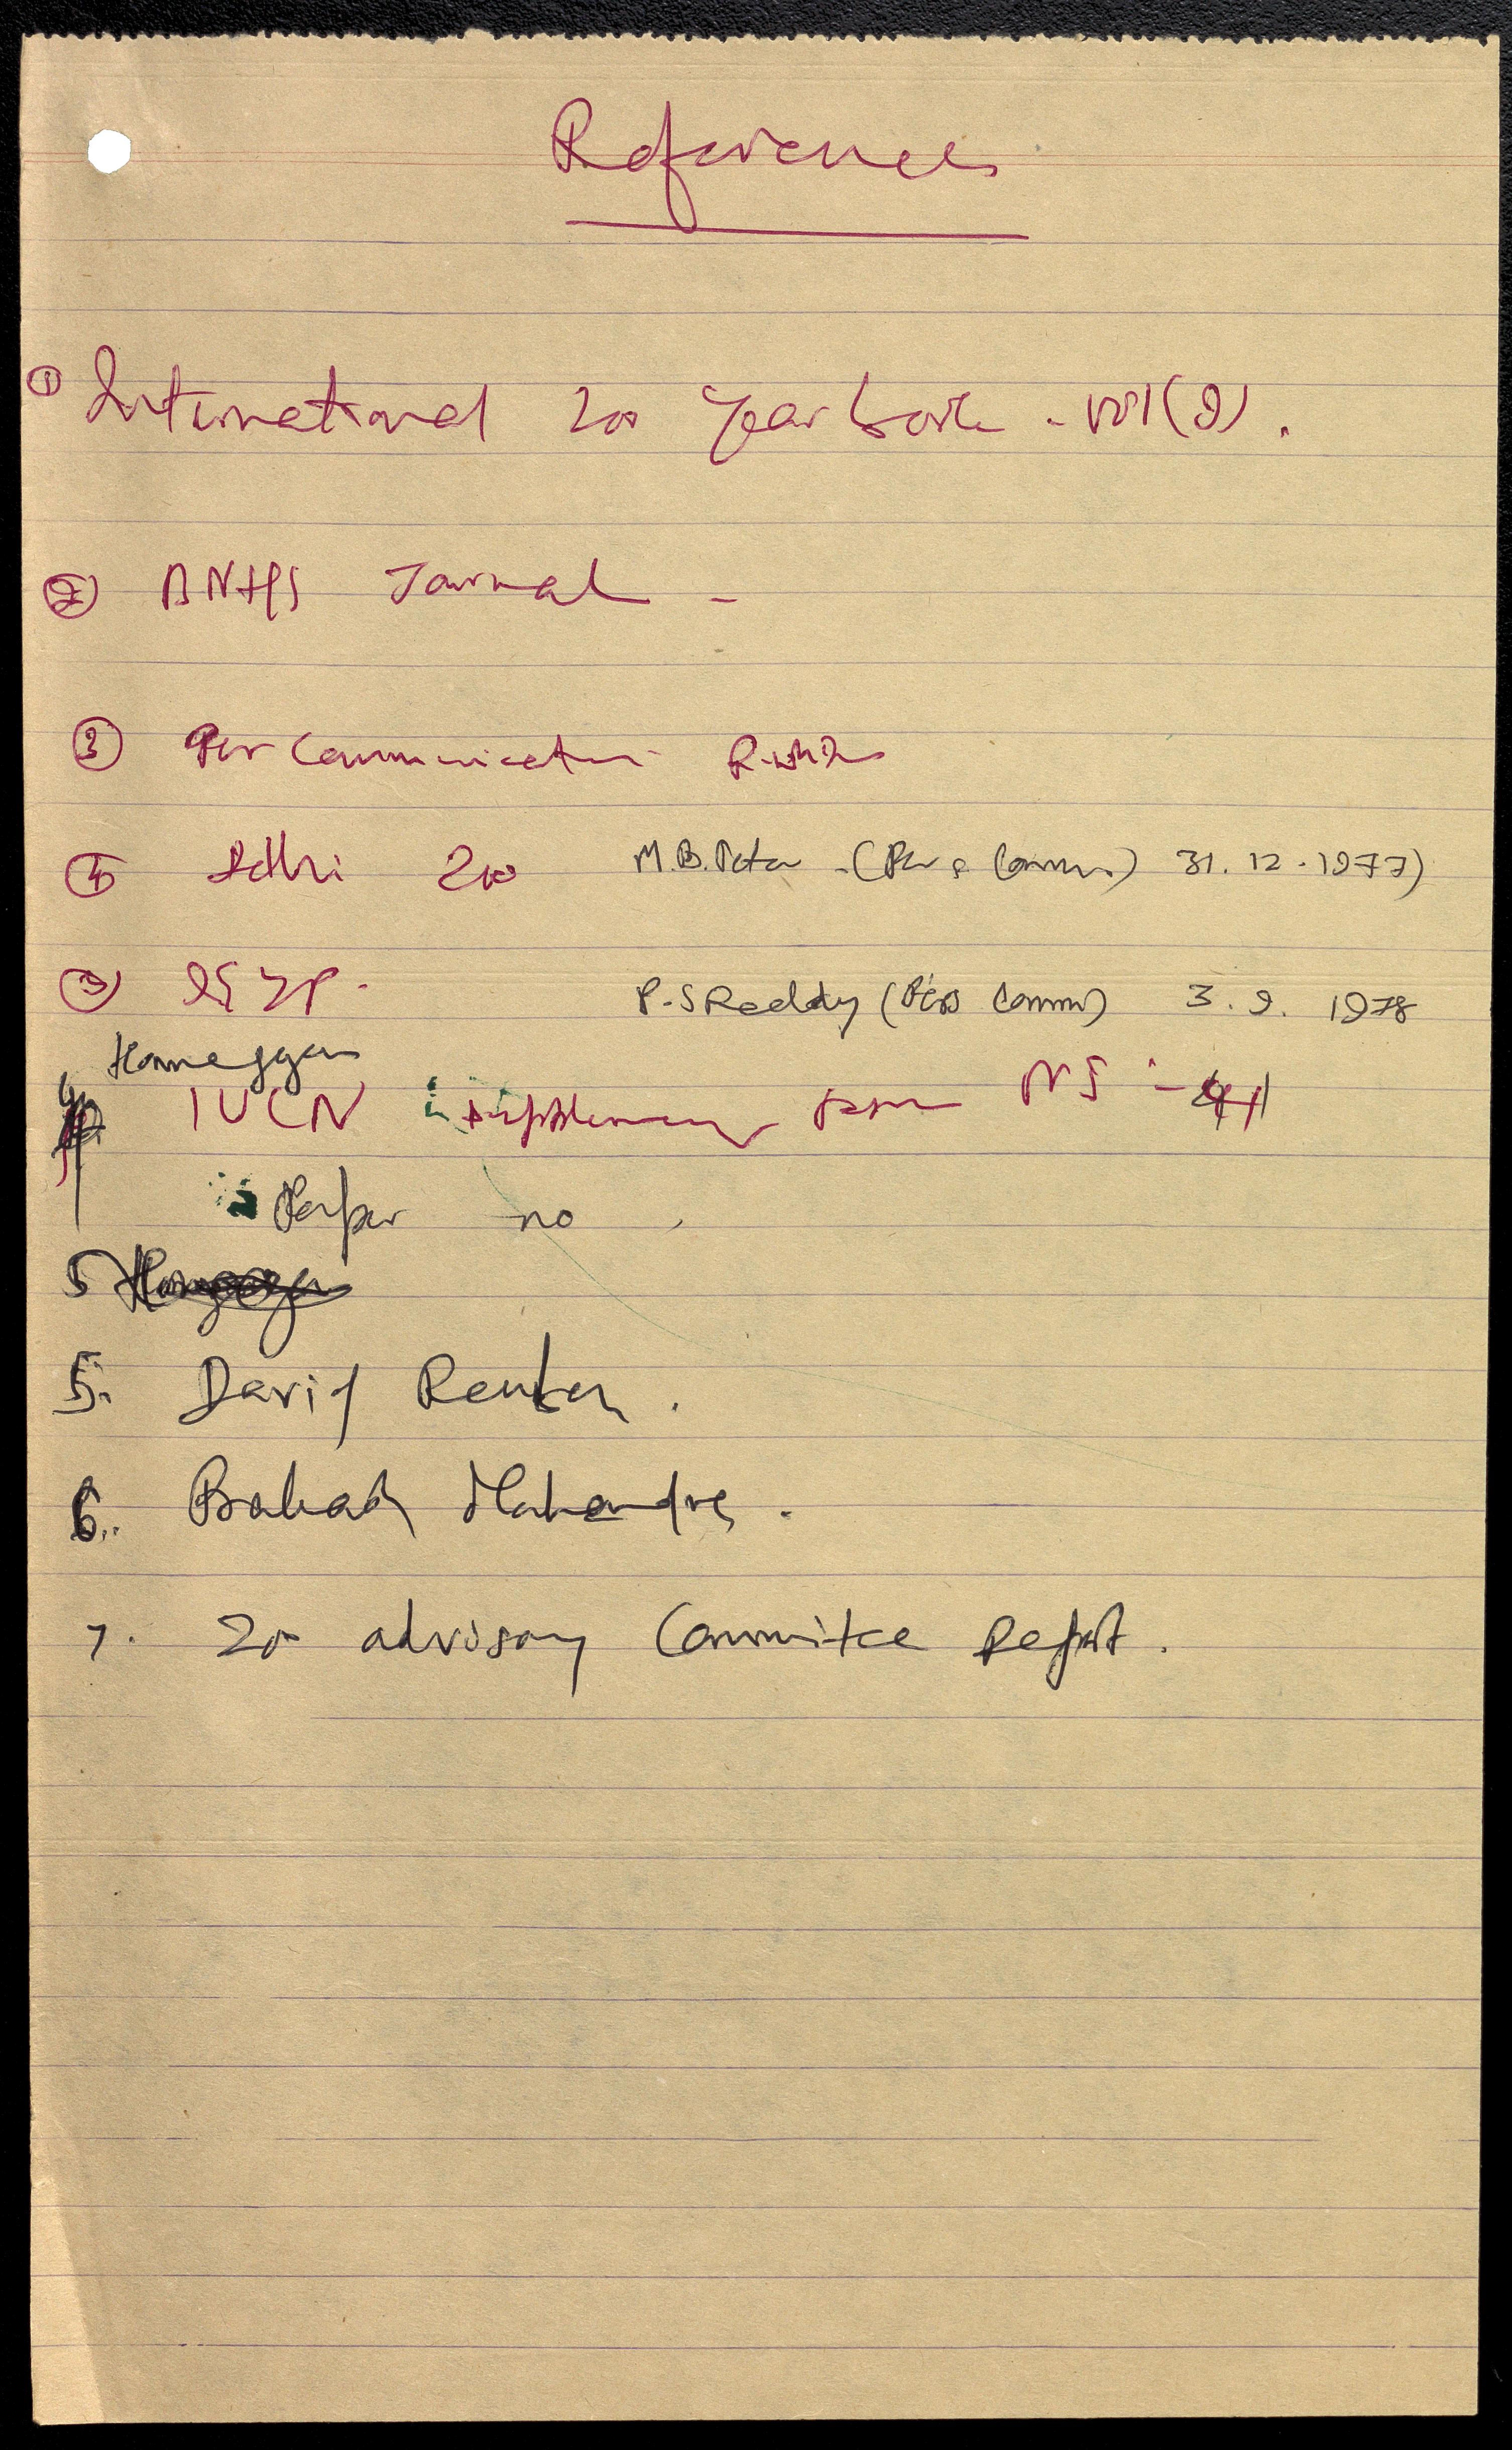 References
① International Zoo Year book - Vol (9).
② BNHS Journal -
③ Per Communication R. Whi
④ Delhi Zoo M.B. (Pers Commn) 31.12.1977)
P.S Reddy (Pers Commn) 3.9.1978
Honegger
IUCN Supplementary Paper NS - 41
Paper no
5
5. David Reuben.
6. Mahendra.
7. Zoo advisory Committee Report.